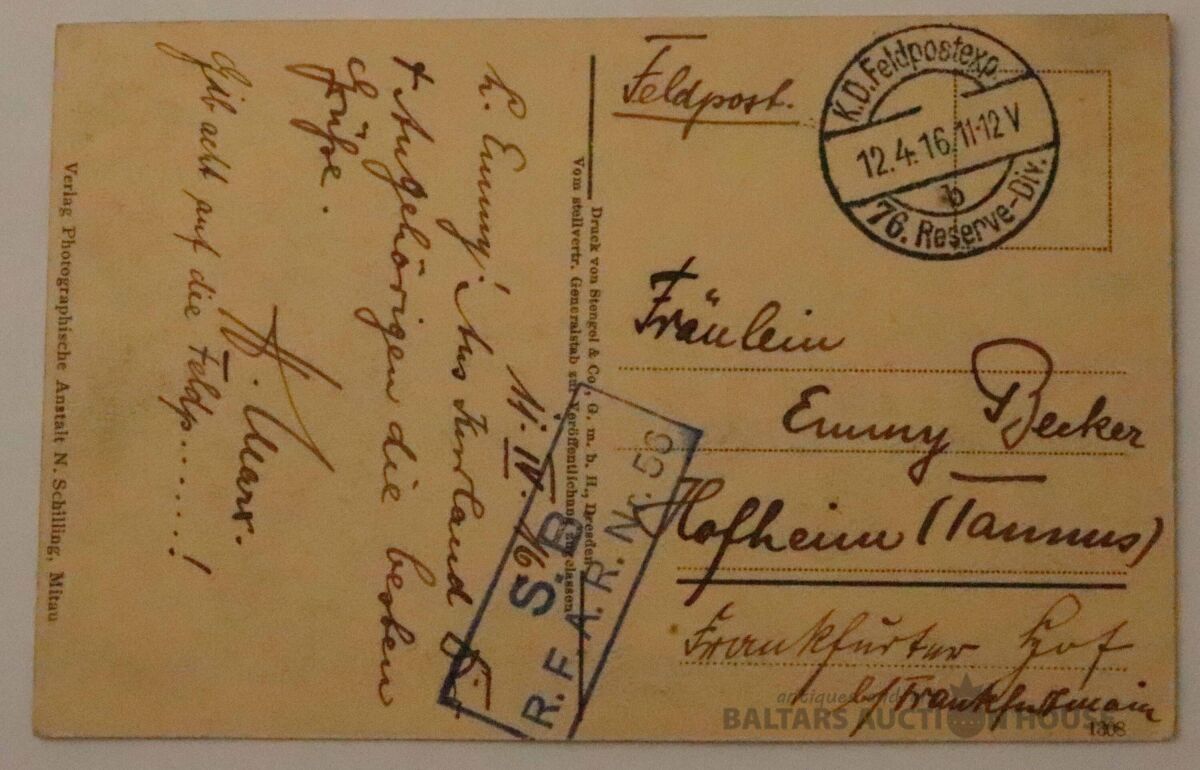 Feldpost.
K.D. Feldpostexp.
12.4.16. 11-12 V
b
76. Reserve-Div.
Fräulein
Emmy Becker
Hofheim (Taunus)
Frankfurter Hof
b/ Frankfurtmain
1308
11.IV.16
L. Emmy! Aus Kurland Dir
+ Angehörigen die besten
Grüße.
H. Marx.
Gib acht auf die Feldp......!
Druck von Stengel & Co., G. m. b. H., Dresden
Vom stellvertr. Generalstab zur Veröffentlichung zugelassen
Verlag Photographische Anstalt N. Schilling, Mitau
S. B.
R. F. A. R. Nr. 56
antiques and
BALTARS AUCTION HOUSE